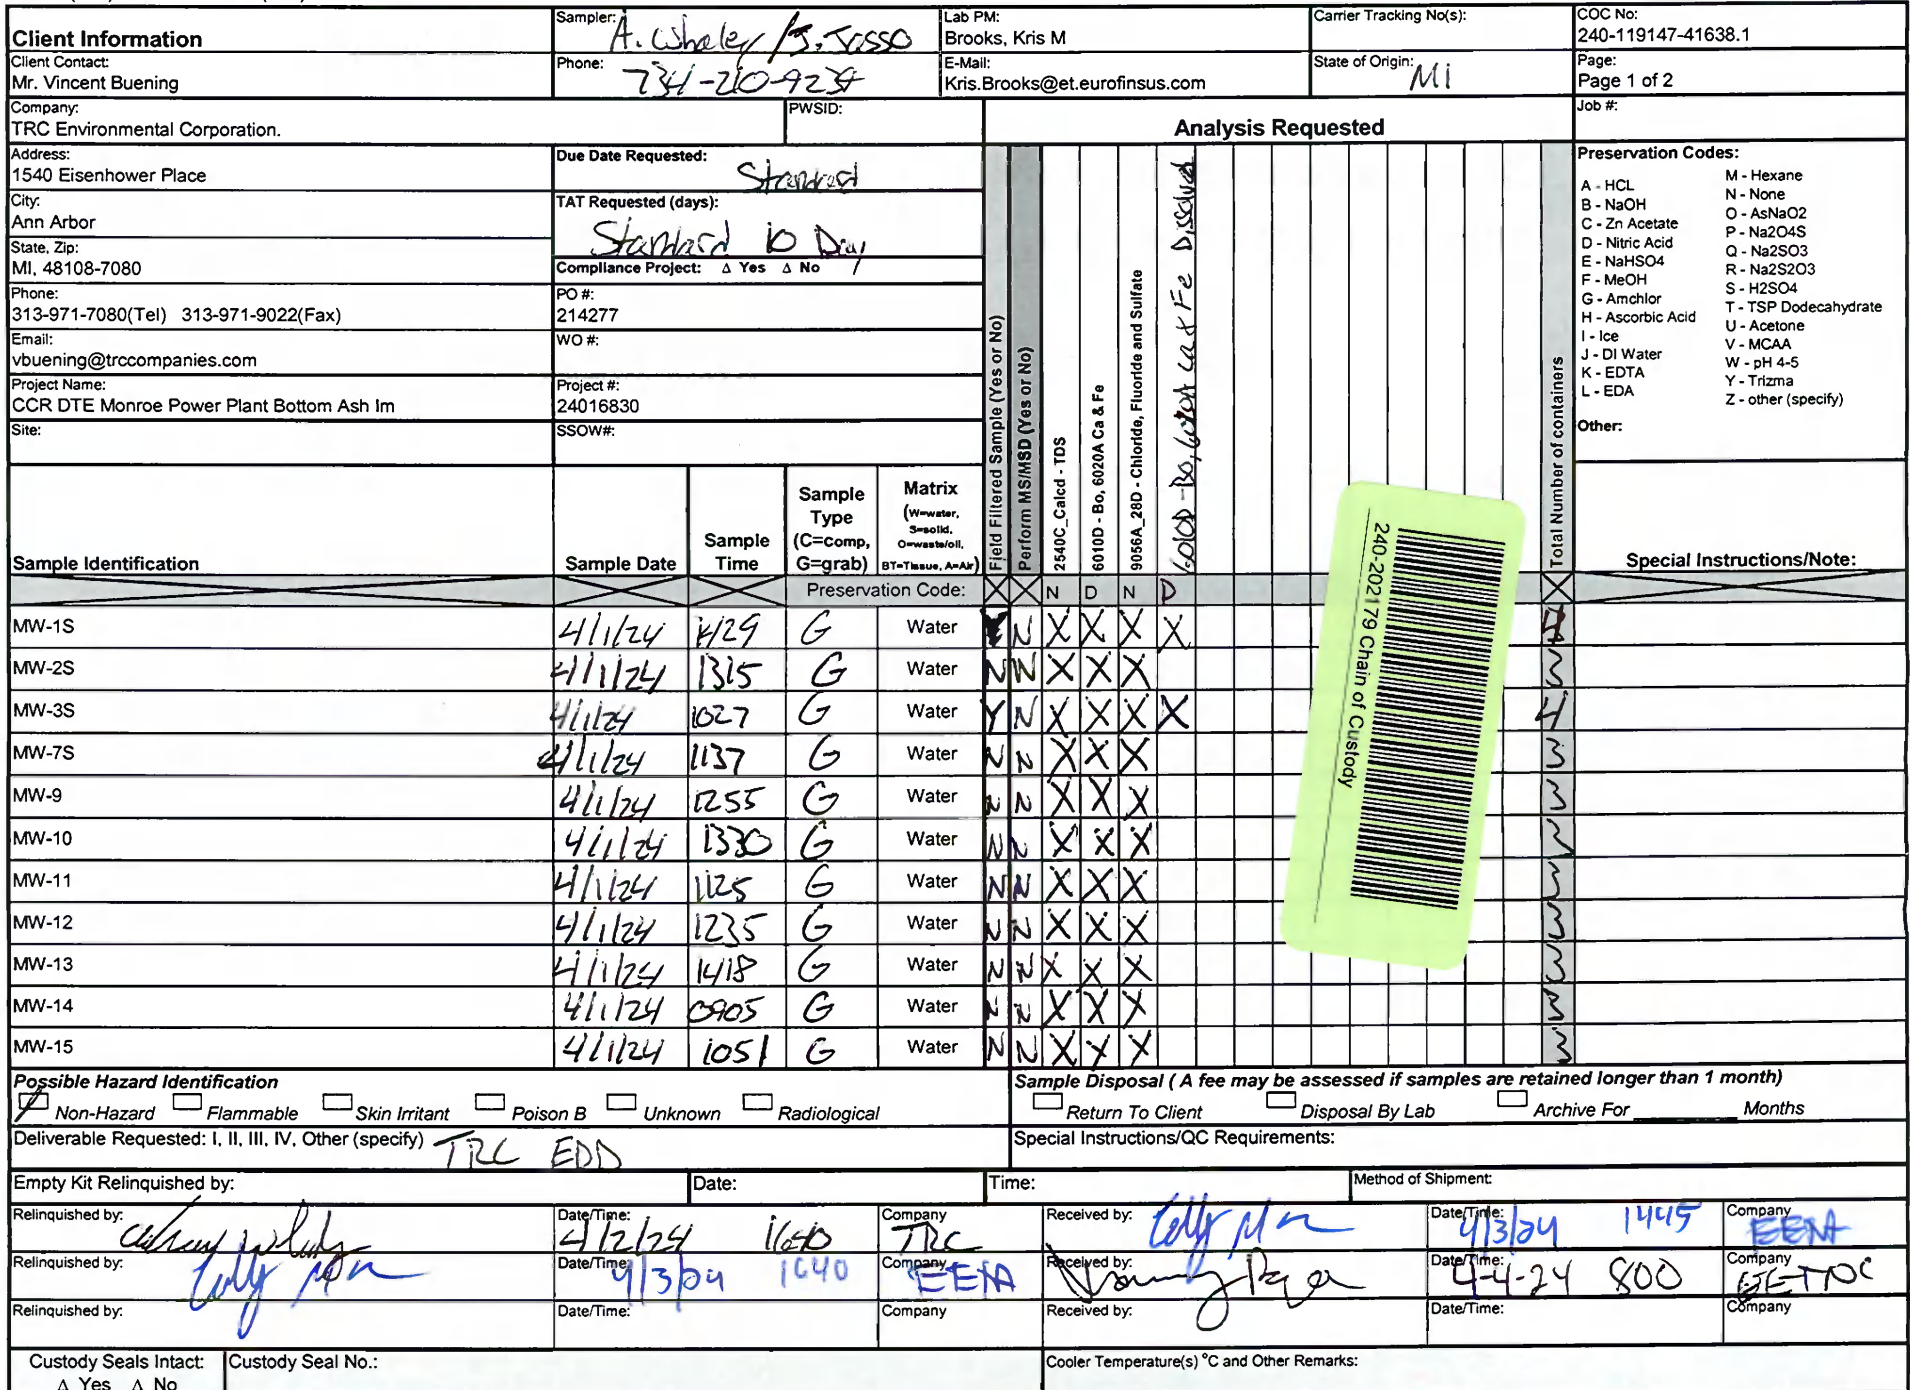 Client Information
Sampler: A. Whaley / J. Sasso
Lab PM:
Brooks, Kris M
Carrier Tracking No(s):
COC No:
240-119147-41638.1
Client Contact:
Mr. Vincent Buening
Phone: 734-210-923
E-Mail:
Kris.Brooks@et.eurofinsus.com
State of Origin: MI
Page:
Page 1 of 2
Company:
TRC Environmental Corporation.
PWSID:
Analysis Requested
Job #:
Address:
1540 Eisenhower Place
Due Date Requested:
Standard
City:
Ann Arbor
TAT Requested (days):
Standard 10 Day
State, Zip:
MI, 48108-7080
Compliance Project: Δ Yes Δ No
Phone:
313-971-7080(Tel) 313-971-9022(Fax)
PO #:
214277
Email:
vbuening@trccompanies.com
WO #:
Project Name:
CCR DTE Monroe Power Plant Bottom Ash Im
Project #:
24016830
Site:
SSOW#:
Preservation Codes:
A - HCL
B - NaOH
C - Zn Acetate
D - Nitric Acid
E - NaHSO4
F - MeOH
G - Amchlor
H - Ascorbic Acid
I - Ice
J - DI Water
K - EDTA
L - EDA
M - Hexane
N - None
O - AsNaO2
P - Na2O4S
Q - Na2SO3
R - Na2S2O3
S - H2SO4
T - TSP Dodecahydrate
U - Acetone
V - MCAA
W - pH 4-5
Y - Trizma
Z - other (specify)
Other:
Sample Identification
Sample Date
Sample Time
Sample Type (C=comp, G=grab)
Matrix (W=water, S=solid, O=waste/oil, BT=Tissue, A=Air)
Field Filtered Sample (Yes or No)
Perform MS/MSD (Yes or No)
2540C_Calcd - TDS
6010D - Bo, 6020A Ca & Fe
9056A_28D - Chloride, Fluoride and Sulfate
6010D - Bo, 6020A Ca & Fe Dissolved
Total Number of containers
Special Instructions/Note:
Preservation Code: N D N D
240-202179 Chain of Custody
MW-1S 4/1/24 1429 G Water Y N X X X X 4
MW-2S 4/1/24 1315 G Water N N X X X 3
MW-3S 4/1/24 1027 G Water Y N X X X X 4
MW-7S 4/1/24 1137 G Water N N X X X 3
MW-9 4/1/24 1255 G Water N N X X X 3
MW-10 4/1/24 1330 G Water N N X X X 3
MW-11 4/1/24 1125 G Water N N X X X 3
MW-12 4/1/24 1235 G Water N N X X X 3
MW-13 4/1/24 1418 G Water N N X X X 3
MW-14 4/1/24 0905 G Water N N X X X 3
MW-15 4/1/24 1051 G Water N N X X X 3
Possible Hazard Identification
Non-Hazard Flammable Skin Irritant Poison B Unknown Radiological
Sample Disposal ( A fee may be assessed if samples are retained longer than 1 month)
Return To Client Disposal By Lab Archive For ________ Months
Deliverable Requested: I, II, III, IV, Other (specify) TRC EDD
Special Instructions/QC Requirements:
Empty Kit Relinquished by:
Date:
Time:
Method of Shipment:
Relinquished by:
Date/Time: 4/2/24 1640
Company TRC
Received by:
Date/Time: 4/3/24 1445
Company EENA
Relinquished by:
Date/Time: 4/3/24 1640
Company EENA
Received by:
Date/Time: 4-4-24 800
Company
Relinquished by:
Date/Time:
Company
Received by:
Date/Time:
Company
Custody Seals Intact:
Δ Yes Δ No
Custody Seal No.:
Cooler Temperature(s) °C and Other Remarks: